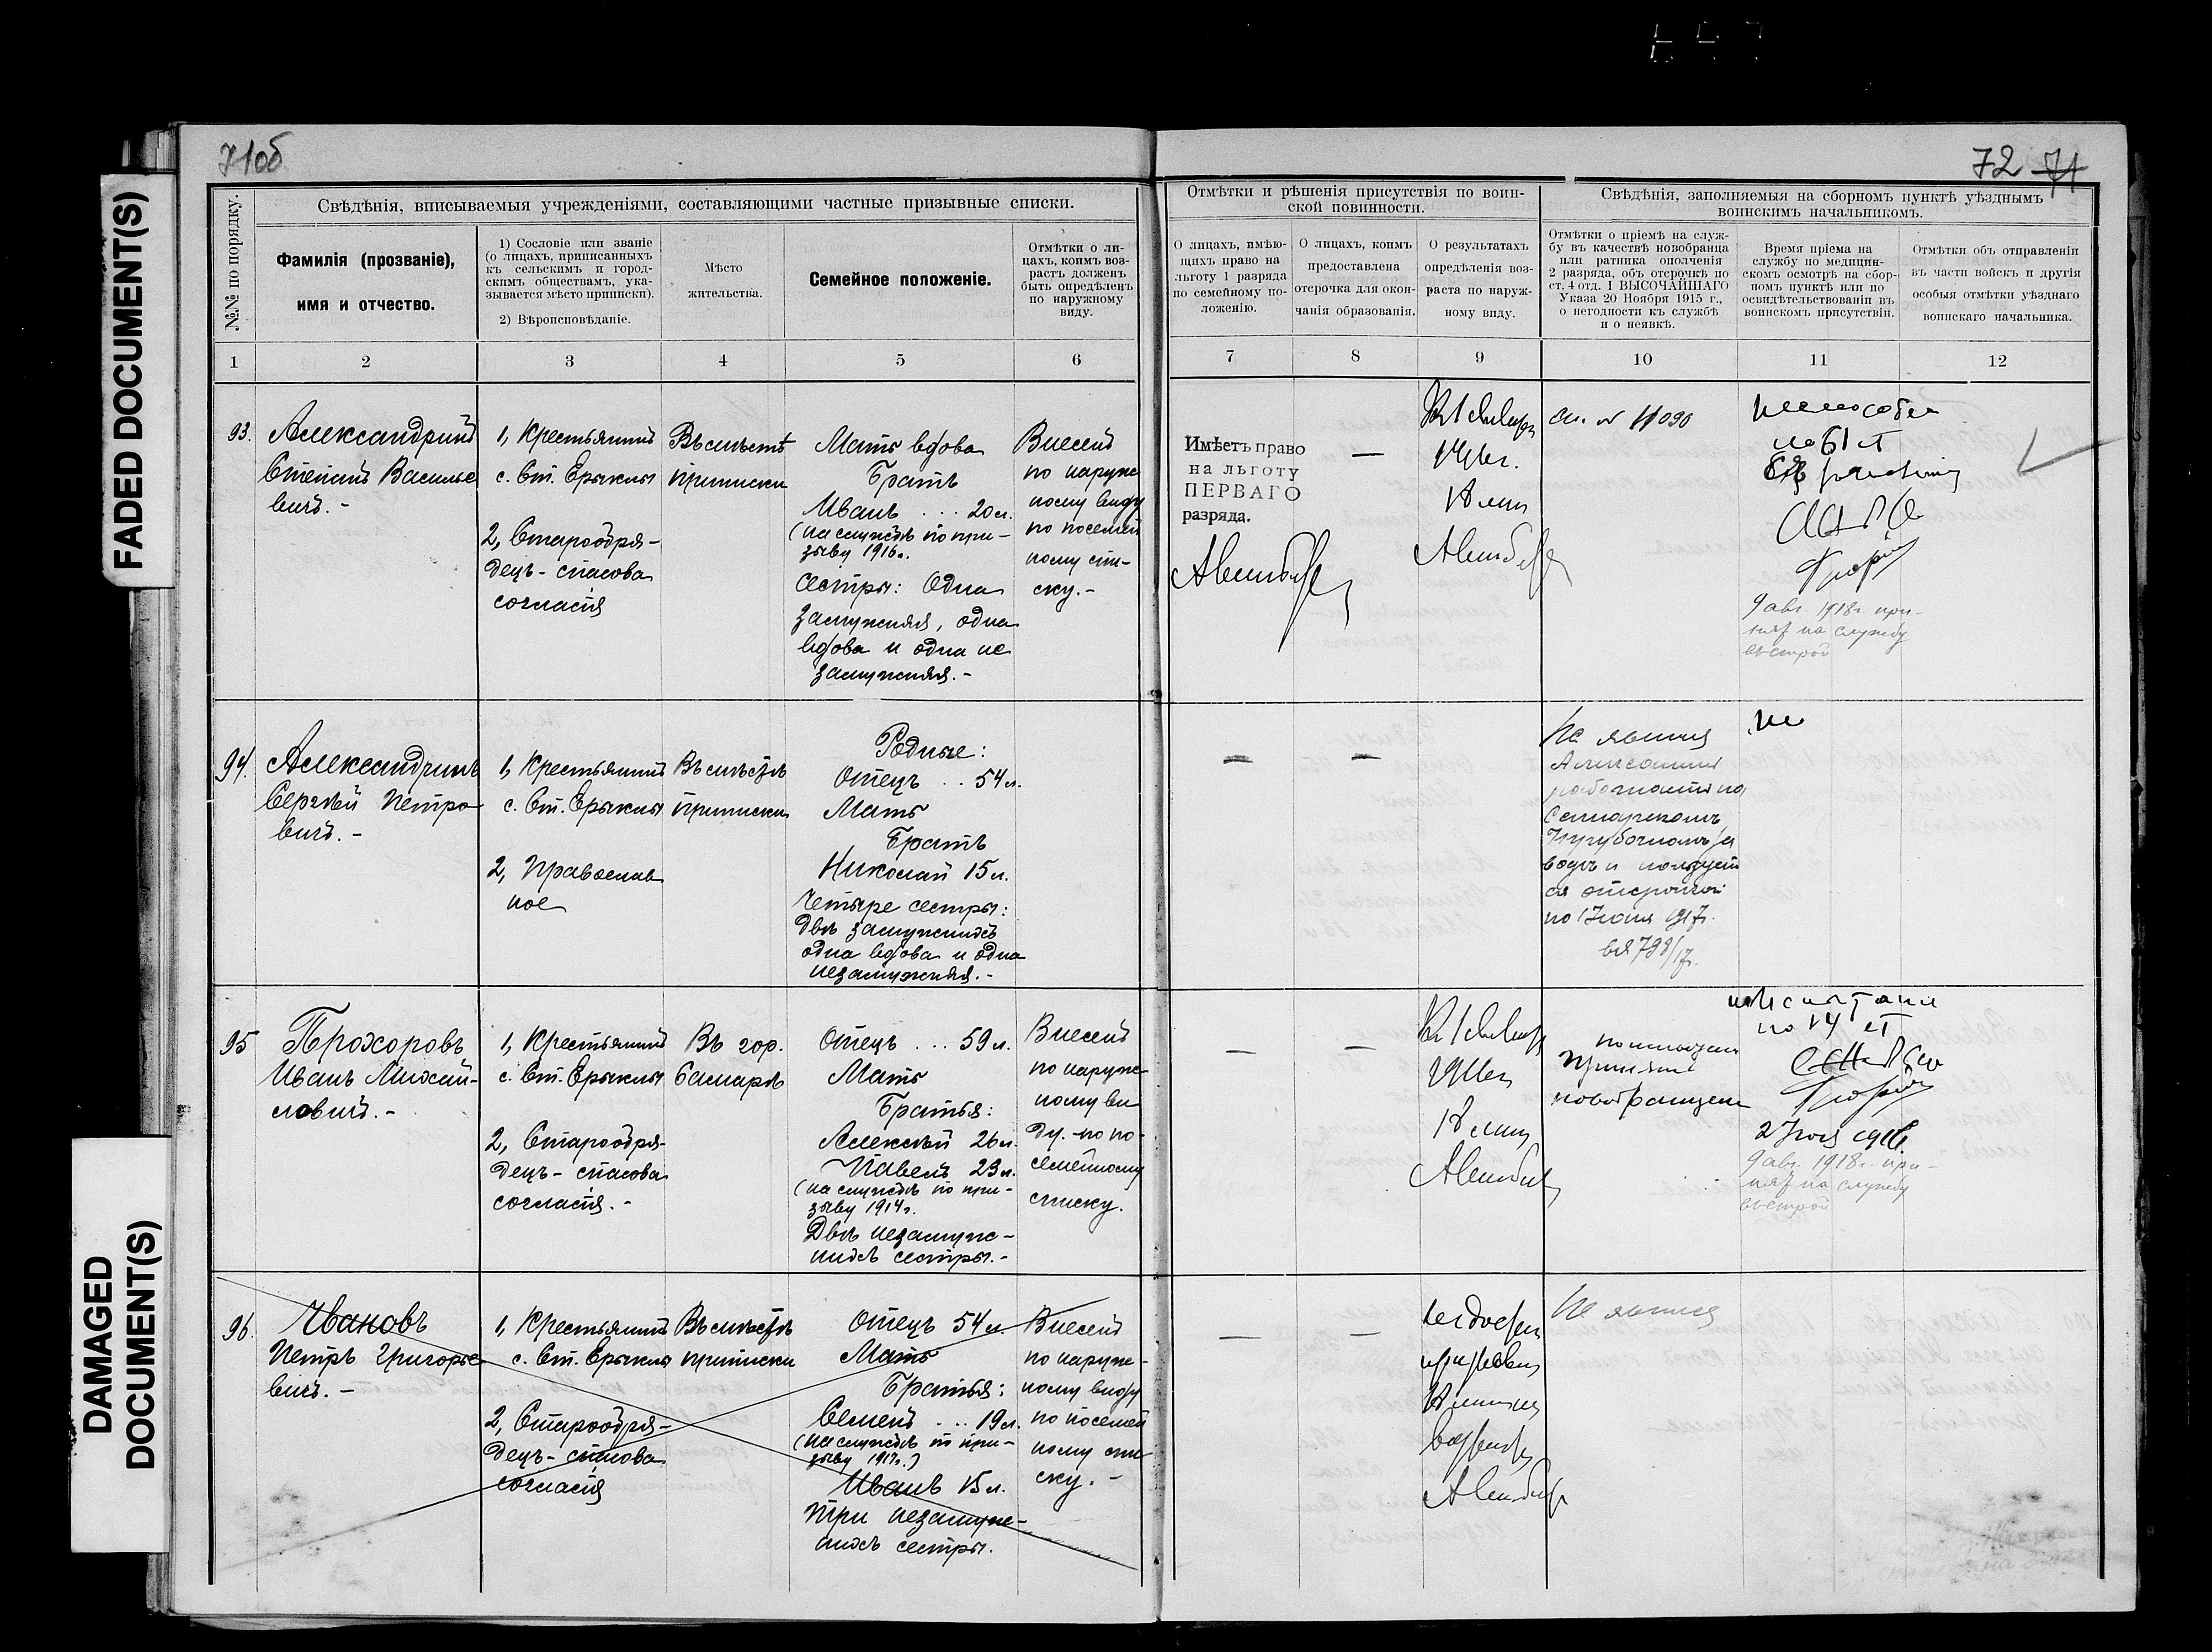 FADED DOCUMENT(S)
DAMAGED
DOCUMENT(S)
71об
72 71
№№ по порядку.
Свѣдѣнія, вписываемыя учрежденіями, составляющими частные призывные списки.
Фамилія (прозваніе),
имя и отчество.
1) Сословіе или званіе
(о лицахъ, приписанныхъ
къ сельскимъ и город-
скимъ обществамъ, ука-
зывается мѣсто приписки).
2) Вѣроисповѣданіе.
Мѣсто
жительства.
Семейное положеніе.
Отмѣтки о ли-
цахъ, коимъ воз-
растъ долженъ
быть опредѣленъ
по наружному
виду.
Отмѣтки и рѣшенія присутствія по воин-
ской повинности.
О лицахъ, имѣю-
щихъ право на
льготу 1 разряда
по семейному по-
ложенію.
О лицахъ, коимъ
предоставлена
отсрочка для окон-
чанія образованія.
О результатахъ
опредѣленія воз-
раста по наруж-
ному виду.
Свѣдѣнія, заполняемыя на сборномъ пунктѣ уѣзднымъ
воинскимъ начальникомъ.
Отмѣтки о пріемѣ на служ-
бу въ качествѣ новобранца
или ратника ополченія
2 разряда, объ отсрочкѣ по
ст. 4 отд. I ВЫСОЧАЙШАГО
Указа 20 Ноября 1915 г.,
о негодности къ службѣ
и о неявкѣ.
Время пріема на
службу по медицин-
скомъ осмотрѣ на сбор-
номъ пунктѣ или по
освидѣтельствованіи въ
воинскомъ присутствіи.
Отмѣтки объ отправленіи
въ части войскъ и другія
особыя отмѣтки уѣзднаго
воинскаго начальника.
1 2 3 4 5 6 7 8 9 10 11 12
93.
Александринъ
Степанъ Василье
вичъ. -
1, Крестьянинъ
с. Ст. Ерыклы
2, Старообря-
децъ - спасова
согласія
Въ мѣстѣ
приписки
Мать вдова
Братъ
Иванъ ... 20 л.
(на службѣ по при-
зыву 1916 г.
Сестры: Одна
замужняя, одна
вдова и одна не
замужняя. -
Внесенъ
по наруж
ному виду
по посемей
ному спи-
ску. -
Имѣетъ право
на льготу
ПЕРВАГО
разряда.
—
9 авг. 1918 г. при-
нят на службу
въ строй
94.
Александринъ
Сергѣй Петро
вичъ. -
1, Крестьянинъ
с. Ст. Ерыклы
2, Православ
ное
Въ мѣстѣ
приписки
Родные:
Отецъ .. 54 л.
Мать
Братъ
Николай 15 л.
Четыре сестры:
Двѣ замужнихъ
одна вдова и одна
незамужняя. -
—
—
Не явился
Самарскомъ
Трубочномъ за
водѣ и пользует
ся отсрочкой
по 1 Июня 1917 г.
95
Прохоровъ
Иванъ Михай-
ловичъ. -
1, Крестьянинъ
с. Ст. Ерыклы
2, Старообря-
децъ - спасова
согласія. -
Въ гор.
Самарѣ
Отецъ ... 59 л.
Мать
Братья:
Алексѣй 26 л.
Павелъ 23 л.
(на службѣ по при-
зыву 1914 г.
Двѣ незамуж-
нихъ сестры. -
Внесенъ
по наруж-
ному ви
ду. - по по-
семейному
списку.
—
—
9 авг. 1918 г. при-
нят на службу
въ строй
96.
Ивановъ
Петръ Григорье
вичъ. -
1, Крестьянинъ
с. Ст. Ерыклы
2, Старообря-
децъ - спасова
согласія
Въ мѣстѣ
приписки
Отецъ 54 л.
Мать
Братья:
Семенъ ... 19 л.
(на службѣ по при-
зыву 1917 г.)
Иванъ 15 л.
три незамуж-
нихъ сестры.
Внесенъ
по наруж-
ному виду
по посемей
ному спи
ску. -
—
—
Не явился